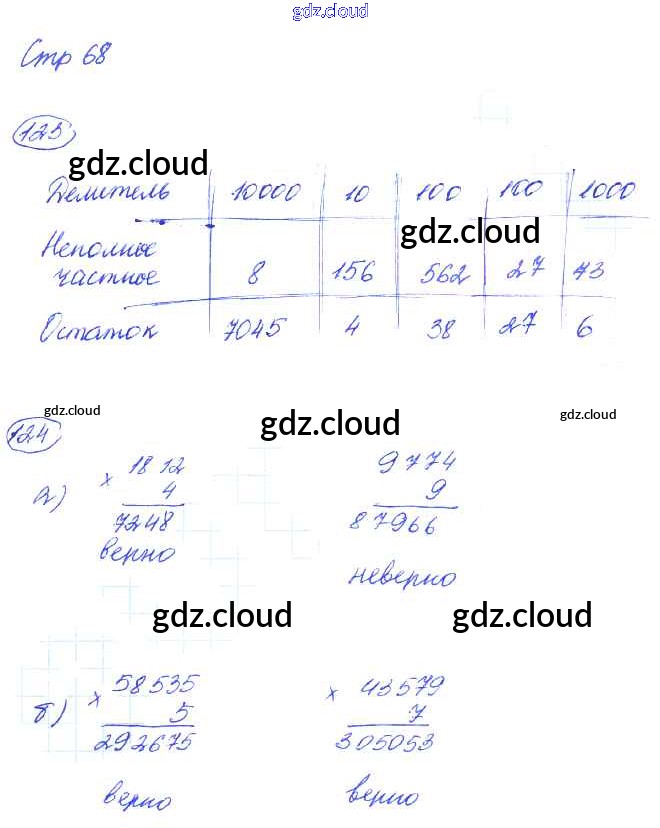 gdz.cloud
Стр 68
125
gdz.cloud
Делитель 10000 10 100 100 1000
gdz.cloud
Неполное
частное 8 156 562 27 43
Остаток 7045 4 38 27 6
gdz.cloud gdz.cloud gdz.cloud
124
а) × 1812 9774
4 9
7248 87966
верно неверно
gdz.cloud gdz.cloud
б) × 58535 × 43579
5 7
292675 305053
верно верно